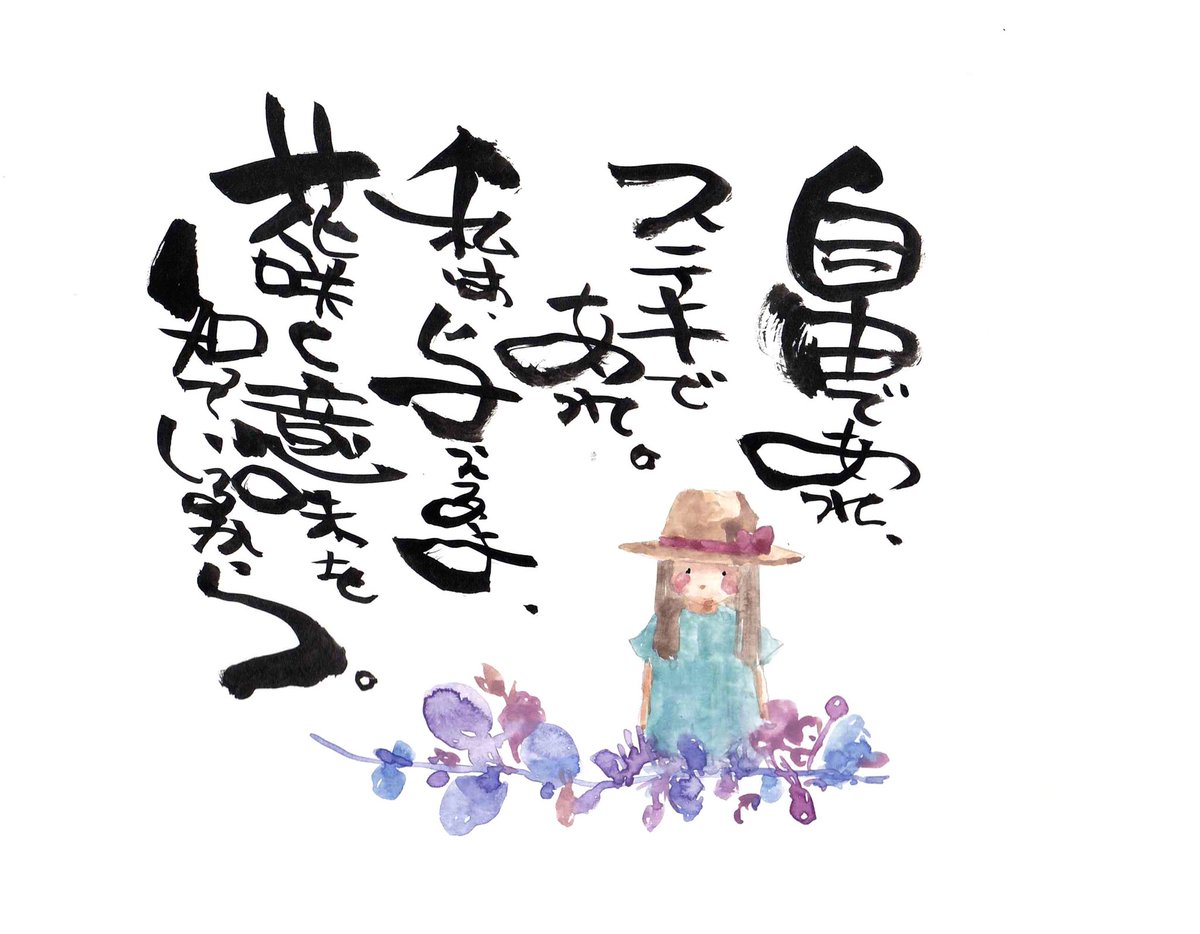 自由であれ、
ステキで
あれ。
私は、
花咲く意味を
知っているから。